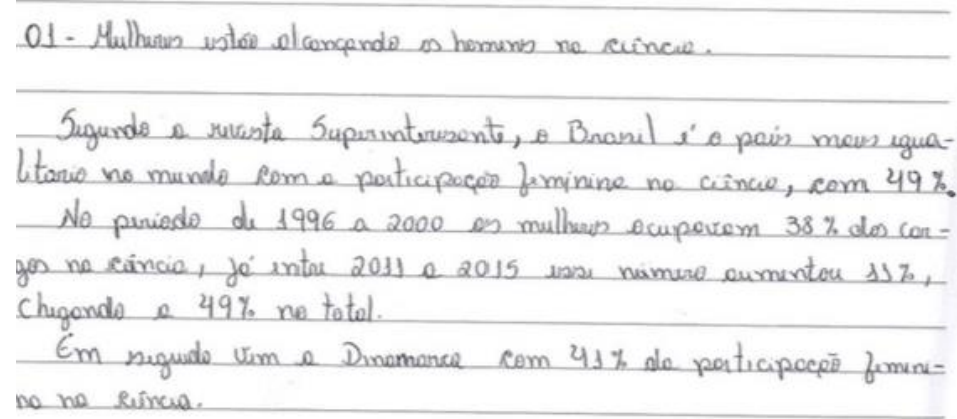 01 - Mulheres estão alcançando os homens na ciência.
Segundo a revista Superinteresante, o Brasil é o país mais igua-
litario no mundo com a participação feminina na ciência, com 49%.
No periodo de 1996 a 2000 as mulheres ocupavam 38% dos car-
gos na ciência, já entre 2011 a 2015 esse número aumentou 11%,
chegando a 49% no total.
Em seguida vem a Dinamarca com 41% da participação femini-
na na ciência.